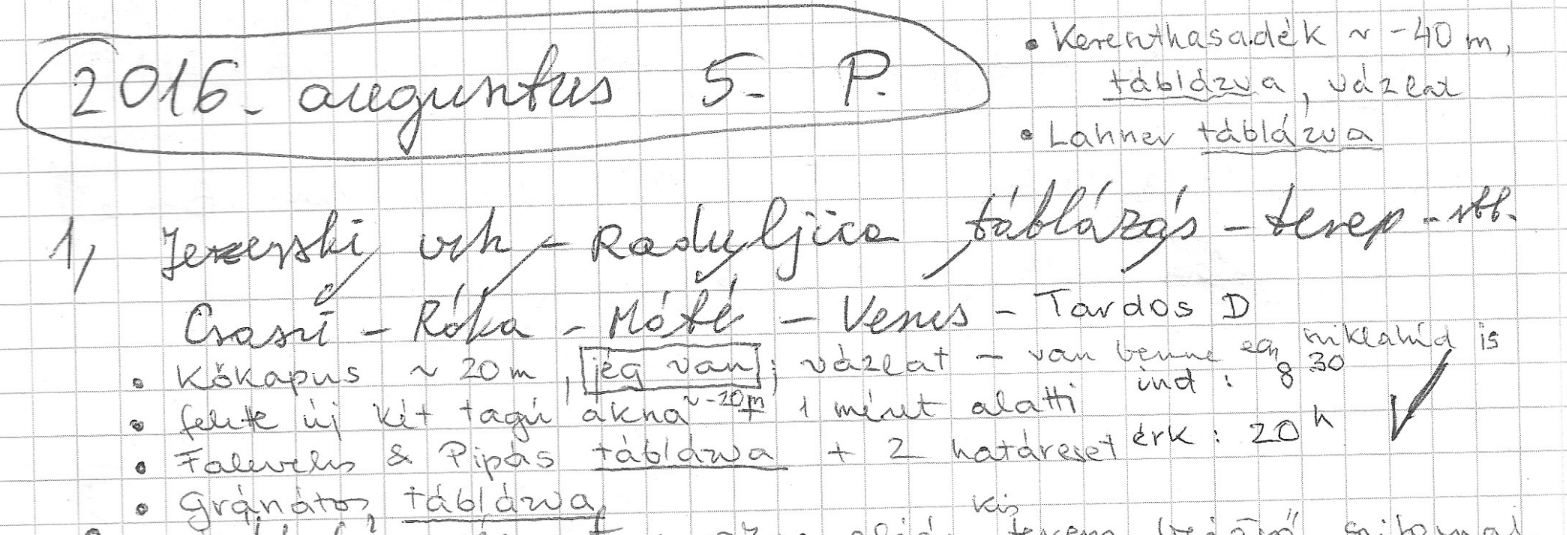 2016. augusztus 5. P.
• Kereszthasadék ~ -40 m,
táblázva, vázlat
• Lahner táblázva
1, Jezerski vrh - Raduljica táblázás - terep - stb.
Csaszi - Róka - Máté - Vencs - Tardos D
• Kőkapus ~ 20 m, jég van; vázlat - van benne egy sziklahíd is
ind: 8 30
• felette új két tagú akna ~ -20 m + 1 méret alatti
• Falevelis & Pipás táblázva + 2 határeset
érk: 20 h
• Gránátos, táblázva
kis